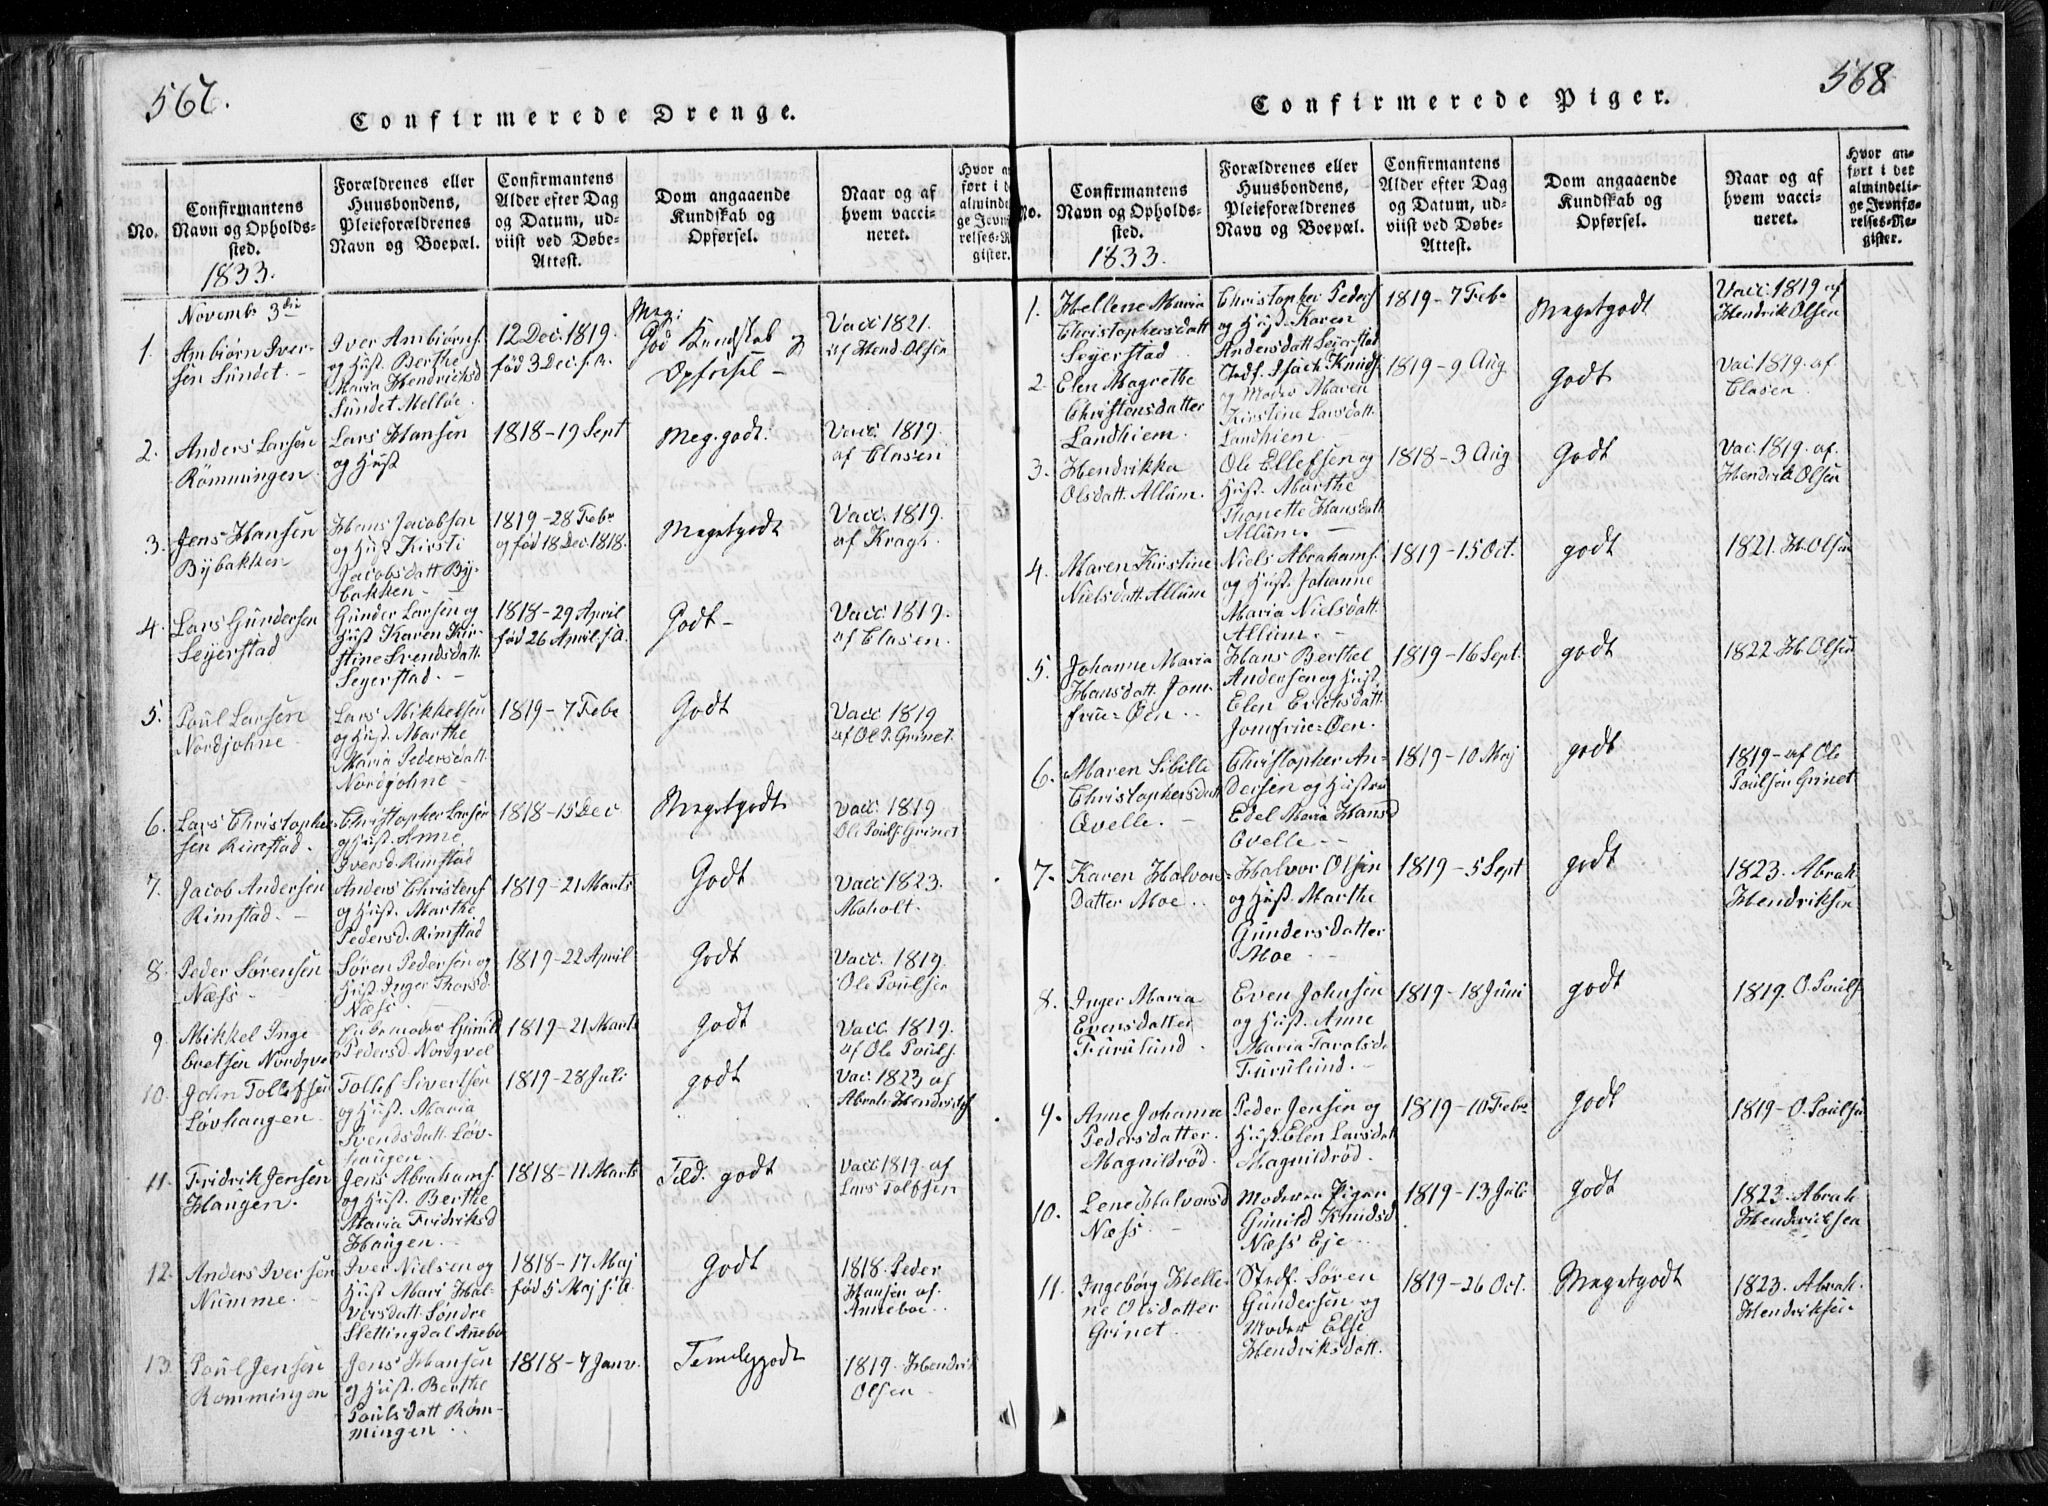 567.
Confirmerede Drenge.
No.
Confirmantens
Navn og Opholds-
sted.
1833.
Forældrenes eller
Huusbondens,
Pleieforældrenes
Navn og Boepæl.
Confirmantens
Alder efter Dag
og Datum, ud-
viist ved Døbe-
Attest.
Dom angaaende
Kundskab og
Opførsel.
Naar og af
hvem vacci-
neret.
Novembr 3die
1.
Ambiørn Iver-
sen Sundet. -
Iver Ambiørns.
og Hust. Berthe
Maria Hendrichsd
Sundet Melløe.
12 Dec. 1819.
fød 3 Dec. s. A.
Meg:
God Kundskab og
Opførsel -
Vacc 1821.
af Hend. Olsen
2.
Anders Larsen
Rømmingen.
Lars Hansen
og Hust
1818 - 19 Sept
Meg. godt.
Vacc. 1819.
af Clasen
3.
Jens Hansen
Bÿbakken
Hans Jacobsen
og Hust Kirsti
Jacobsdatt Bÿ-
bakken -
1819 - 28 Febr
og fød 18 Dec. 1818.
Megetgodt
Vacc. 1819.
af Kragh.
4.
Lars Gundersen
Sejerstad
Gunder Larsen og
Hust Karen Kir-
stine Svendsdatt.
Sejerstad. -
1818 - 29 April
fød 26 April s. A.
Godt -
Vacc. 1819.
af Clasen.
5.
Poul Larsen
Nordjohne.
Lars Mikkelsen
og Hust. Marthe
Maria Pedersdatt.
Nordjohne -
1819 - 7 Febr
Godt
Vacc 1819
af Ol P. Grinet.
6.
Lars Christopher-
sen Rimstad.
Christopher Larsen
og Hust. Anne
Iversd. Rimstad
1818 - 15 Dec
Megetgodt
Vacc. 1819
Ole Pouls. Grinet
7.
Jacob Andersen
Rimstad. -
Anders Christens
og Hust. Marthe
Pedersd. Rimstad
1819 - 21 Marts
Godt
Vacc 1823.
Moholt.
8.
Peder Sørensen
Næss -
Søren Pedersen og
Hust Inger Thorsd.
Næss. -
1819 - 22 April
Godt
Vacc. 1819.
Ole Poulsen
9.
Mikkel Inge
bretsen Nordqve
moder Gunild
Pedersd Nordqvel
1819 - 21 Marts
Godt
Vacc. 1819.
af Ole Pouls.
10.
John Tollefsen
Løvhaugen
Tollef Sivertsen
og Hust. Maria
Svendsdatt. Løv-
haugen.
1819 - 28 Juli
godt
Vac. 1823 af
Abrah. Hendrichs
11.
Fridrik Jensen
Haugen.
Jens Abrahams.
og Hust. Berthe
Maria Fridriksd
Haugen. -
1818 - 11 Marts
Tild. godt
Vacc 1819. af
Lars Tolfsen
12.
Anders Iversen
Numme. -
Iver Nielsen og
Hust Mari Hal-
vorsdatt Søndre
Slettingdal Anebo
1818 - 17 Maj
fød 5 Maj s. A.
Godt
1818 Peder
Hansen af
Anneboe.
13.
Poul Jensen
Rømmingen
Jens Hansen
og Hust. Berthe
Poulsdatt Røm-
mingen.
1818 - 7 Janv.
Temeliggodt
1819. Hendrik
Olsen
568
Confirmerede Piger.
No.
Confirmantens
Navn og Opholds-
sted.
1833.
Forældrenes eller
Huusbondens,
Pleieforældrenes
Navn og Boepæl.
Confirmantens
Alder efter Dag
og Datum, ud-
viist ved Døbe-
Attest.
Dom angaaende
Kundskab og
Opførsel.
Naar og af
hvem vacci-
neret.
Hvor an-
ført i det
almindeli-
ge Jevnfø-
relses-Re-
gister.
1.
Hellene Maria
Christophersdatt
Sejerstad
Christopher Peders
og Hust. Karen
Andersdatt Sejerstad
1819 - 7 Febr
Megetgodt
Vacc. 1819 af
Hendrik Olsen
2.
Elen Magrethe
Christensdatter
Landhiem.
Stedf. Isach Knuds.
og Moder Maren
Kirstine Larsdatt.
Landhiem
1819 - 9 Aug
Godt
Vac. 1819. af
Clasen
3.
Hendrikka
Olsdatt. Allum.
Ole Ellefsen og
Hust. Marthe
Thonette Hansdatt
Allum.
1818 - 3 Aug
Godt
Vac. 1819. af.
Hendrik Olsen
4.
Maren Kirstine
Nielsdatt. Allum
Niels Abrahams.
og Hust. Johanne
Maria Nielsdatt.
Allum. -
1819 - 15 Oct.
godt
1821. H. Olsen
5.
Johanne Maria
Hansdatt. Jom-
frue=Øen.
Hans Berthel
Andersen og Hust.
Elen Erichsdatt
Jomfrue=Øen.
1819 - 16 Sept.
godt
1822 H. Olsen
6.
Maren Sibille
Christophersdatt
Qvelle. -
Christopher An-
dersen og Hustru
Edel Maria Hansd
Qvelle -
1819 - 10 Maj
godt
1819 - af Ole
Poulsen Grinet
7.
Karen Halvors-
datter Moe.
Halvor Olsen
og Hust. Marthe
Gundersdatter
Moe -
1819 - 5 Sept
godt
1823. Abrah
Hendriksen
8.
Inger Maria
Evensdatter
Furulund
Even Johnsen
og Hust. Anne
Maria Taralsd.
Furulund. -
1819 - 18 Juni
godt
1819. O. Pouls
9.
Anne Johanne
Pedersdatter
Magnildrød.
Peder Jensen og
Hust. Elen Larsdatt
Magnildrød.
1819 - 10 Febr
godt
1819 - O. Poulsen
10.
Lene Halvorsd
Næss. -
Moderen Pigen
Gunild Knudsd
Næss Eje
1819 - 13 Juli
godt
1823. Abrah
Hendricksen
11.
Ingebørg Helle-
ne Olsdatter
Grinet
Stedf. Søren
Gundersen og
Moder Else
Hendriksdatt.
1819 - 26 Oct.
Megetgodt
1823. Abrah.
Hendriksen